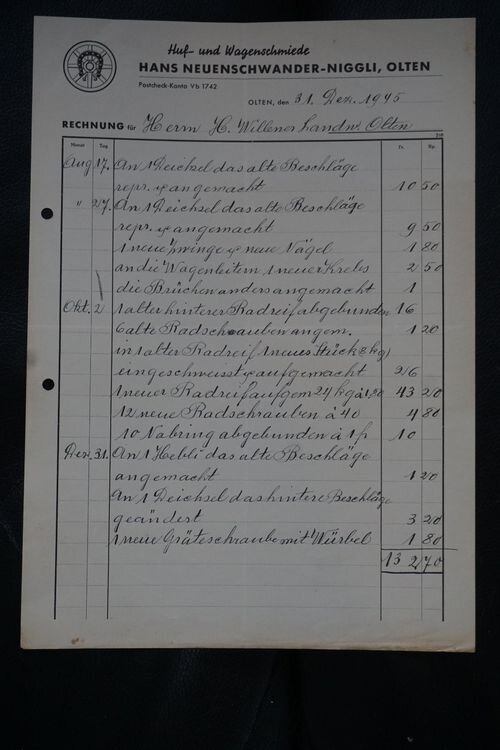 Huf- und Wagenschmiede
HANS NEUENSCHWANDER-NIGGLI, OLTEN
Postcheck-Konto Vb 1742
OLTEN, den 31. Dez. 1945
RECHNUNG für Herrn H. Willener Landw. Olten
Monat Tag Fr. Rp.
Aug 17. An 1 Deichsel das alte Beschläge
repr. & angemacht 10 50
" 27. An 1 Deichsel das alte Beschläge
repr. & angemacht 9 50
1 neue Zwinge & neue Nägel 1 80
an die Wagenleitern 1 neuer Krebs 2 50
die Brüchen anders angemacht 1
Okt. 2 1 alter hinterer Radreif abgebunden 16
6 alte Radschrauben angem. 1 20
in 1 alter Radreif 1 neues Stück 8 kg)
eingeschweisst & aufgemacht 26
1 neuer Radreif aufgem 24 kg à 1,80 43 20
12 neue Radschrauben à 40 4 80
10 Nabring abgebunden à 1 fr 10
Dez. 31. An 1 Hebli das alte Beschläge
angemacht 1 20
An 1 Deichsel das hintere Beschläge
geändert 3 20
1 neue Gräteschraube mit Würbel 1 80
132 70